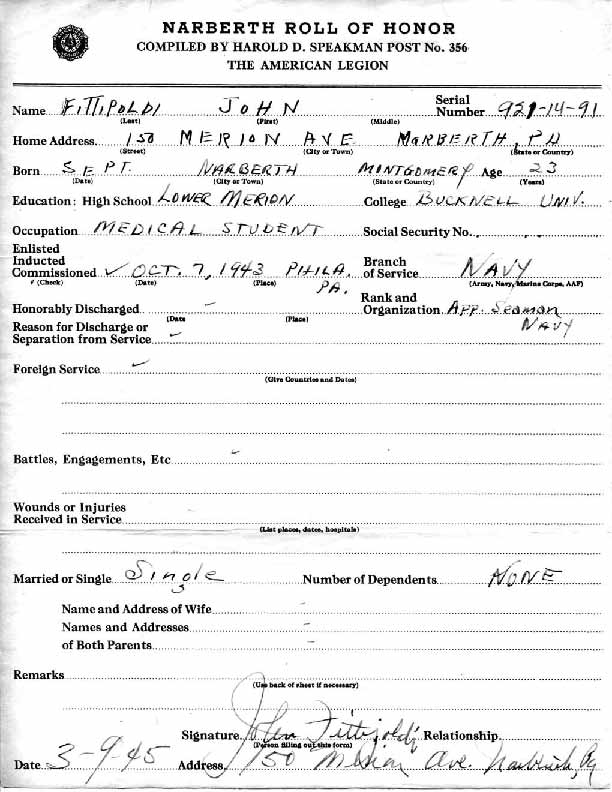 NARBERTH ROLL OF HONOR
COMPILED BY HAROLD D. SPEAKMAN POST No. 356
THE AMERICAN LEGION
Name FITTIPOLDI JOHN Serial Number 921-14-91
(Last) (First) (Middle)
Home Address 150 MERION AVE NARBERTH, PA
(Street) (City or Town) (State or Country)
Born SEPT. NARBERTH MONTGOMERY Age 23
(Date) (City or Town) (State or Country) (Years)
Education: High School LOWER MERION College BUCKNELL UNIV.
Occupation MEDICAL STUDENT Social Security No.
Enlisted
Inducted
Commissioned ✓ OCT. 7, 1943 PHILA. PA. Branch of Service NAVY
✓ (Check) (Date) (Place) (Army, Navy, Marine Corps, AAF)
Honorably Discharged - Rank and Organization App. Seaman NAVY
(Date (Place)
Reason for Discharge or
Separation from Service -
Foreign Service -
(Give Countries and Dates)
Battles, Engagements, Etc -
Wounds or Injuries
Received in Service
(List places, dates, hospitals)
Married or Single Single Number of Dependents NONE
Name and Address of Wife -
Names and Addresses -
of Both Parents -
Remarks
(Use back of sheet if necessary)
Signature John Fittipoldi Relationship
(Person filling out this form)
Date 3-9-45 Address 150 Merion Ave. Narberth, Pa